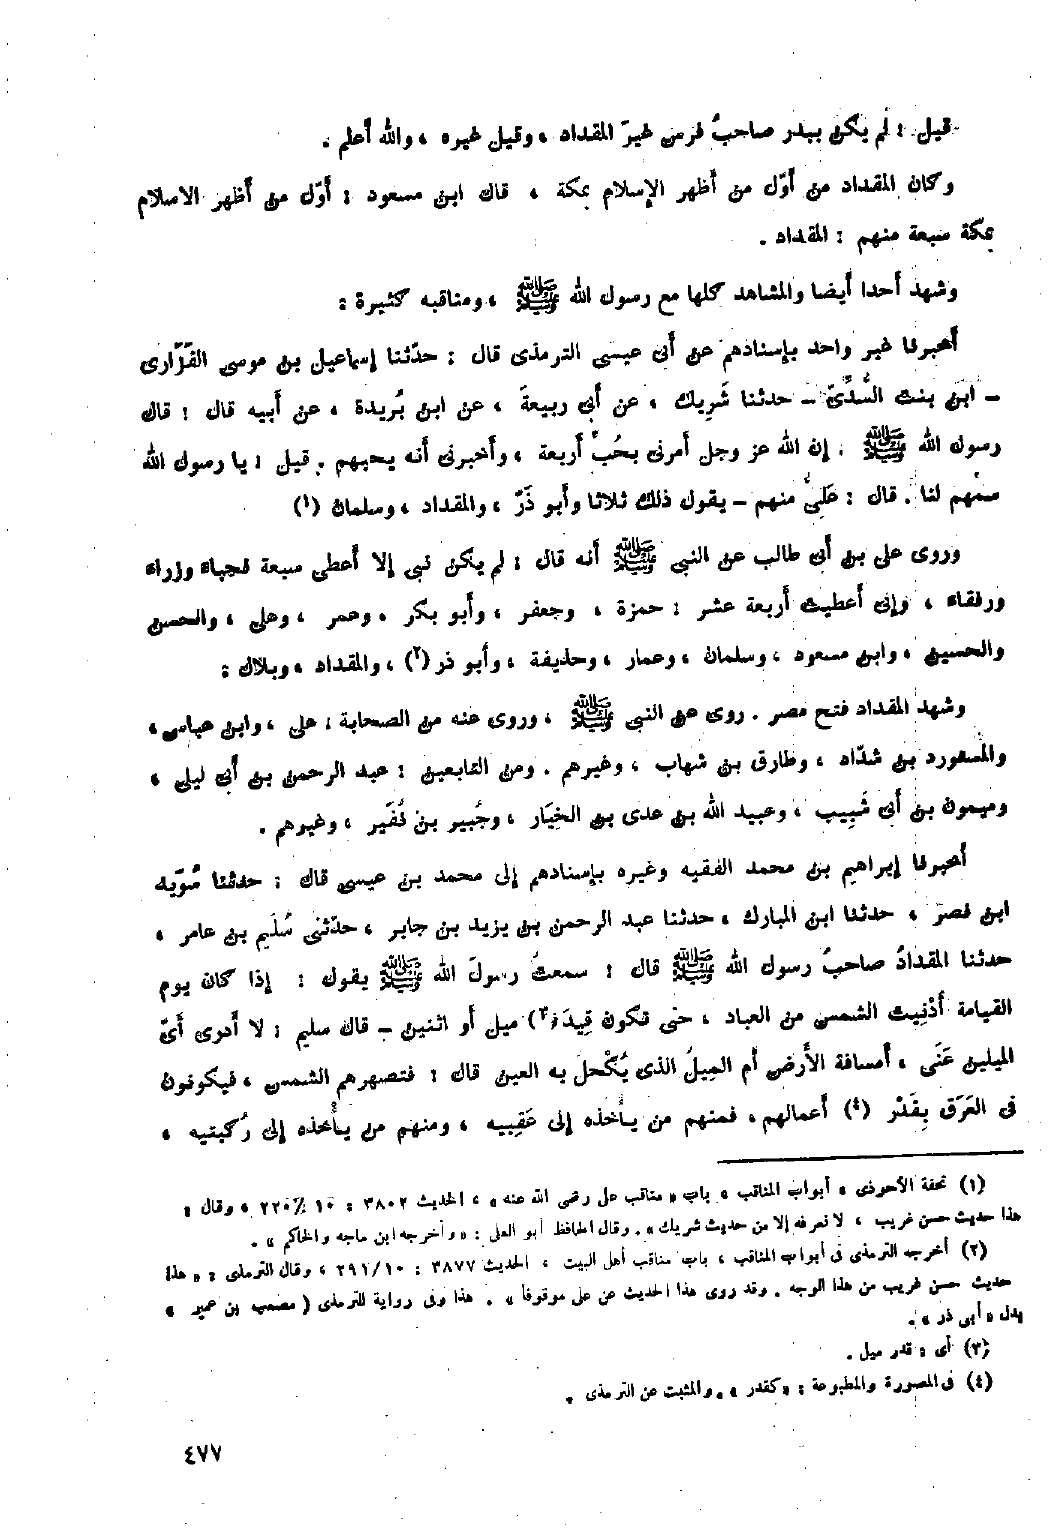 قيل : لم يكن ببدر صاحبُ فرس غيرَ المقداد ، وقيل غيره ، والله أعلم .
وكان المقداد من أوّل من أظهر الإسلام بمكة ، قال ابن مسعود : أوّل من أظهر الاسلام
بمكّة سبعة منهم : المقداد .
وشهد أحدا أيضا والمشاهد كلها مع رسول الله ﷺ ، ومناقبه كثيرة :
أخبرنا غير واحد بإسنادهم عن أبى عيسى الترمذى قال : حدّثنا إسماعيل بن موسى الفَزَّارى
ـ ابن بنت السُّدِّىّ ـ حدثنا شَرِيك ، عن أبى ربيعةَ ، عن ابن بُريدة ، عن أبيه قال : قال
رسول الله ﷺ . إن الله عز وجل أمرنى بحُبِّ أربعة ، وأخبرنى أنه يحبهم . قيل : يا رسول الله
سمّهم لنا . قال : عَلىٌّ منهم ـ يقول ذلك ثلاثا وأبو ذَرّ ، والمقداد ، وسلمان (١)
وروى على بن أبى طالب عن النبى ﷺ أنه قال : لم يكن نبى إلا أعطى سبعة نجباء وزراء
ورفقاء ، وإنى أعطيت أربعة عشر : حمزة ، وجعفر ، وأبو بكر ، وعمر ، وعلى ، والحسن
والحسين ، وابن مسعود ، وسلمان ، وعمار ، وحذيفة ، وأبو ذر (٢) ، والمقداد ، وبلال :
وشهد المقداد فتح مصر . روى عن النبى ﷺ ، وروى عنه من الصحابة : على ، وابن عباس ،
والمسعورد بن شدّاد ، وطارق بن شهاب ، وغيرهم . ومن التابعين : عبد الرحمن بن أبى ليلى ،
وميمون بن أبى شَبِيب ، وعبيد الله بن عدى بن الخيَار ، وجُبير بن نُفَير ، وغيرهم .
أخبرنا إبراهيم بن محمد الفقيه وغيره بإسنادهم إلى محمد بن عيسى قال : حدثنا سُوَيد
ابن نصر ، حدثنا ابن المبارك ، حدثنا عبد الرحمن بن يزيد بن جابر ، حدّثنى سُلَيم بن عامر ،
حدثنا المقدادُ صاحبُ رسول الله ﷺ قال : سمعتُ رسولَ الله ﷺ يقول : إذا كان يوم
القيامة أُدْنِيت الشمس من العباد ، حتى تكون قِيدَ (٣) ميل أو اثنين ـ قال سليم : لا أدرى أىّ
الميلين عَنَى ، أمسافة الأرض أم المِيلُ الذى يُكْحل به العين قال : فتصهرهم الشمس ، فيكونون
فى العَرَق بِقَدْر (٤) أعمالهم ، فمنهم من يأخذه إلى عَقِبيه ، ومنهم من يأخذه إلى رُكبتيه ،
(١) تحفة الأحوذى « أبواب المناقب » باب « مناقب على رضى الله عنه » ، الحديث ٣٨٠٢ : ١٠ / ٢٢٠ ، وقال :
هذا حديث حسن غريب ، لا نعرفه إلا من حديث شريك » . وقال الحافظ أبو العلى : « وأخرجه ابن ماجه والحاكم » .
(٢) أخرجه الترمذى فى أبواب المناقب ، باب مناقب أهل البيت ، الحديث ٣٨٧٧ : ١٠/ ٢٩١ ، وقال الترمذى : « هذا
حديث حسن غريب من هذا الوجه . وقد روى هذا الحديث عن على موقوفا » . هذا وفى رواية للترمذى ( مصعب بن عمير »
بدل « أبى ذر » .
(٣) أى : قدر ميل .
(٤) فى المصورة والمطبوعة : « كقدر » . والمثبت عن الترمذى .
٤٧٧